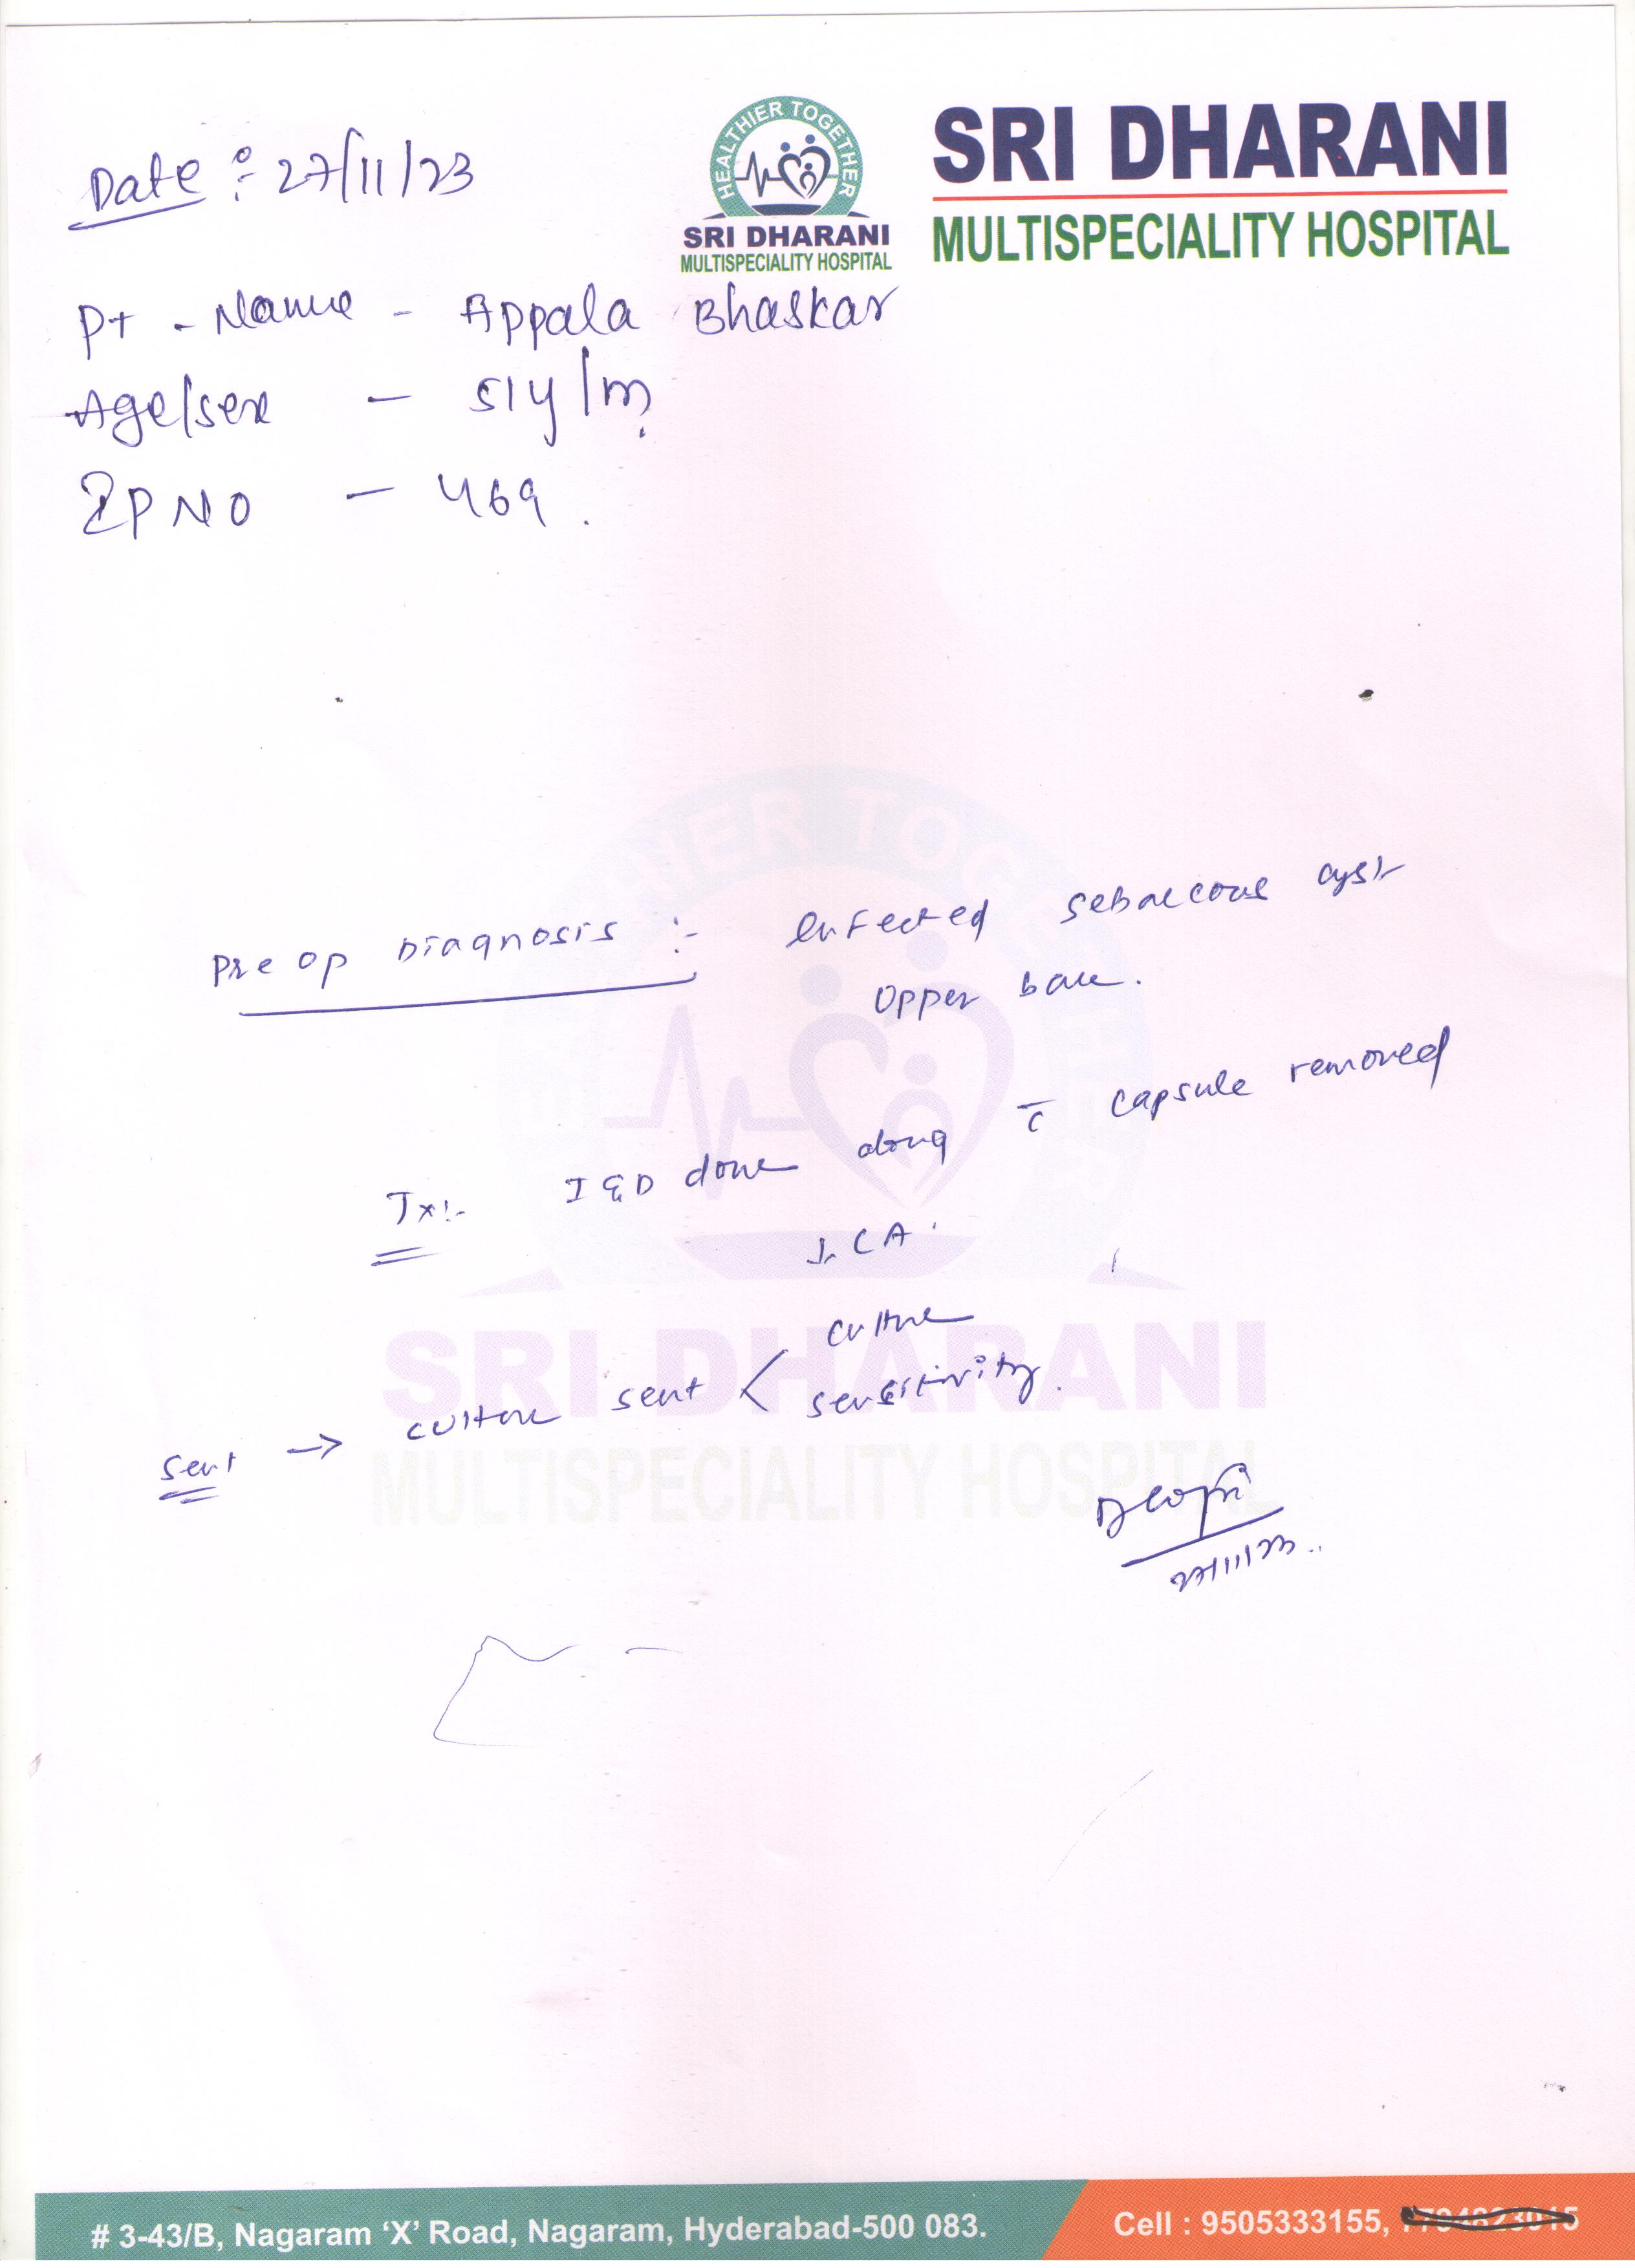 Date :- 27/11/23
HEALTHIER TOGETHER
SRI DHARANI
MULTISPECIALITY HOSPITAL
SRI DHARANI
MULTISPECIALITY HOSPITAL
Pt - Name - Appala Bhaskar
Age/sex - 51y/m
IP NO - 469.
Pre op Diagnosis :- Infected sebaceous cyst
Upper back.
Tx:- I&D done along c̄ capsule removed
LA
sent → culture sent < culture
sensitivity.
27/11/23
HEALTHIER TOGETHER
SRI DHARANI
MULTISPECIALITY HOSPITAL
# 3-43/B, Nagaram 'X' Road, Nagaram, Hyderabad-500 083.
Cell : 9505333155,